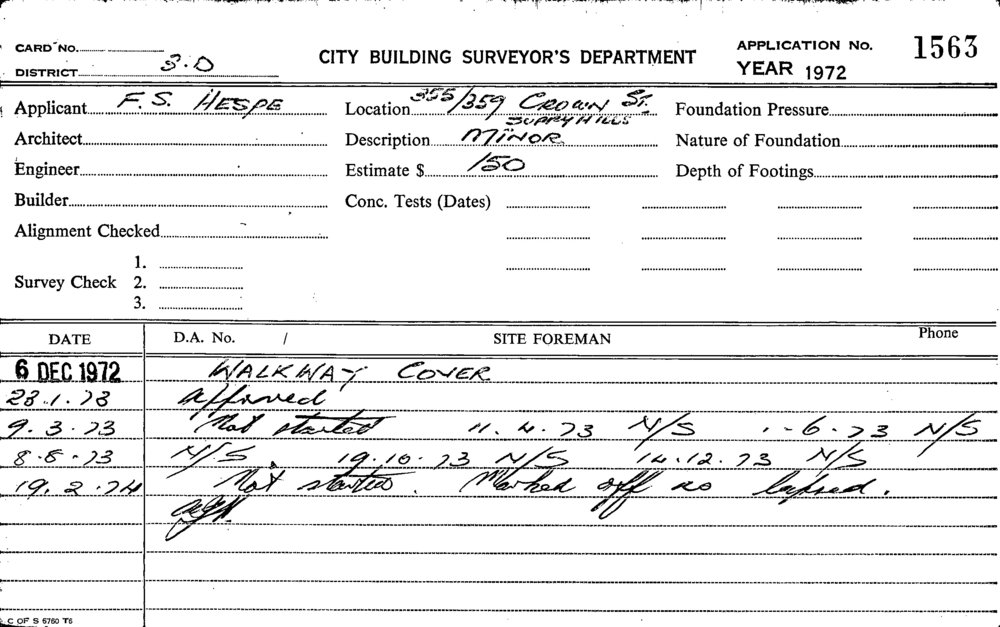 CARD No.
CITY BUILDING SURVEYOR'S DEPARTMENT
APPLICATION No. 1563
DISTRICT S.D
YEAR 1972
Applicant F. S. HESPE
Location 355/359 CROWN ST. SURRY HILLS
Foundation Pressure
Architect
Description MINOR
Nature of Foundation
Engineer
Estimate $ 150
Depth of Footings
Builder
Conc. Tests (Dates)
Alignment Checked
Survey Check 1.
2.
3.
DATE D.A. No. / SITE FOREMAN Phone
6 DEC 1972 WALKWAY COVER
23.1.73 approved
9.3.73 Not started 11.4.73 N/S 1.6.73 N/S
8.8.73 N/S 19.10.73 N/S 14.12.73 N/S
19.2.74 Not started. Marked off as lapsed.
C OF S 6760 T6